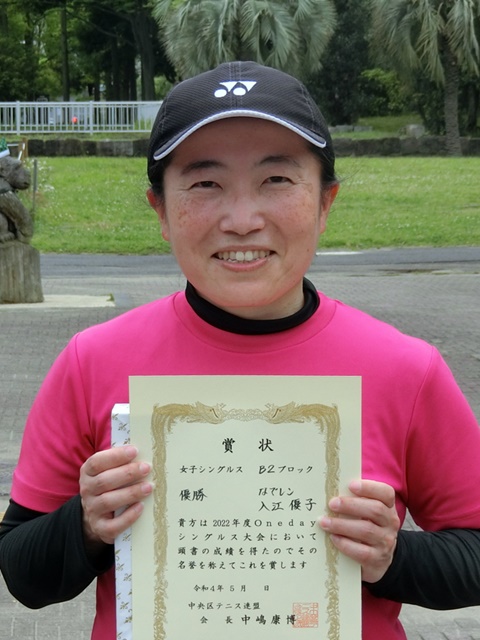 賞状
女子シングルス B2ブロック
なでしン
優勝
入江 優子
貴方は2022年度Oneday
シングルス大会において
頭書の成績を得たのでその
名誉を称えてこれを賞します
令和4年5月 日
中央区テニス連盟
会 長 中嶋康博